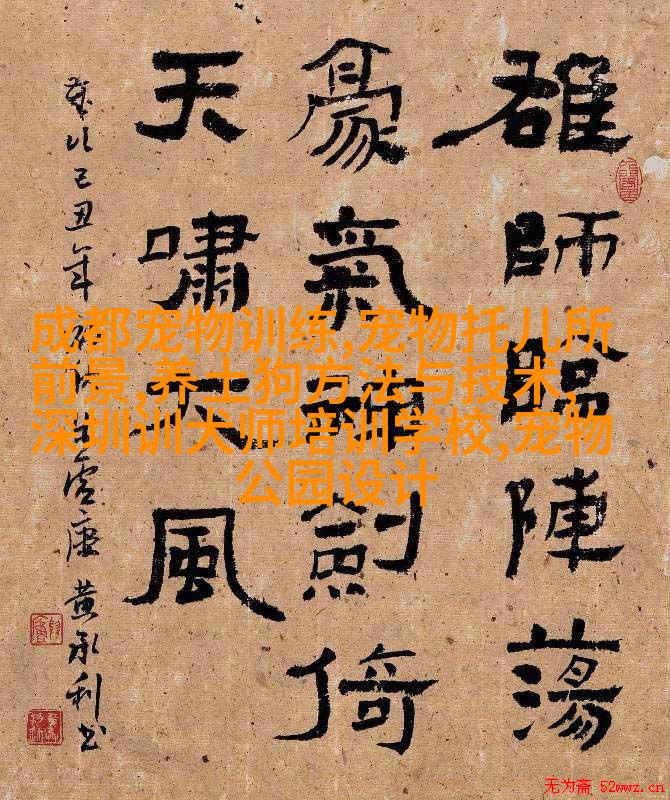 雄師臨陣蕩
豪氣劍倚
天嘯大風
歲次己丑年
黄承利书
成都宠物训练,宠物托儿所
前景,养土狗方法与技术,
深圳训犬师培训学校,宠物
公园设计
无为斋 52wwz.cn